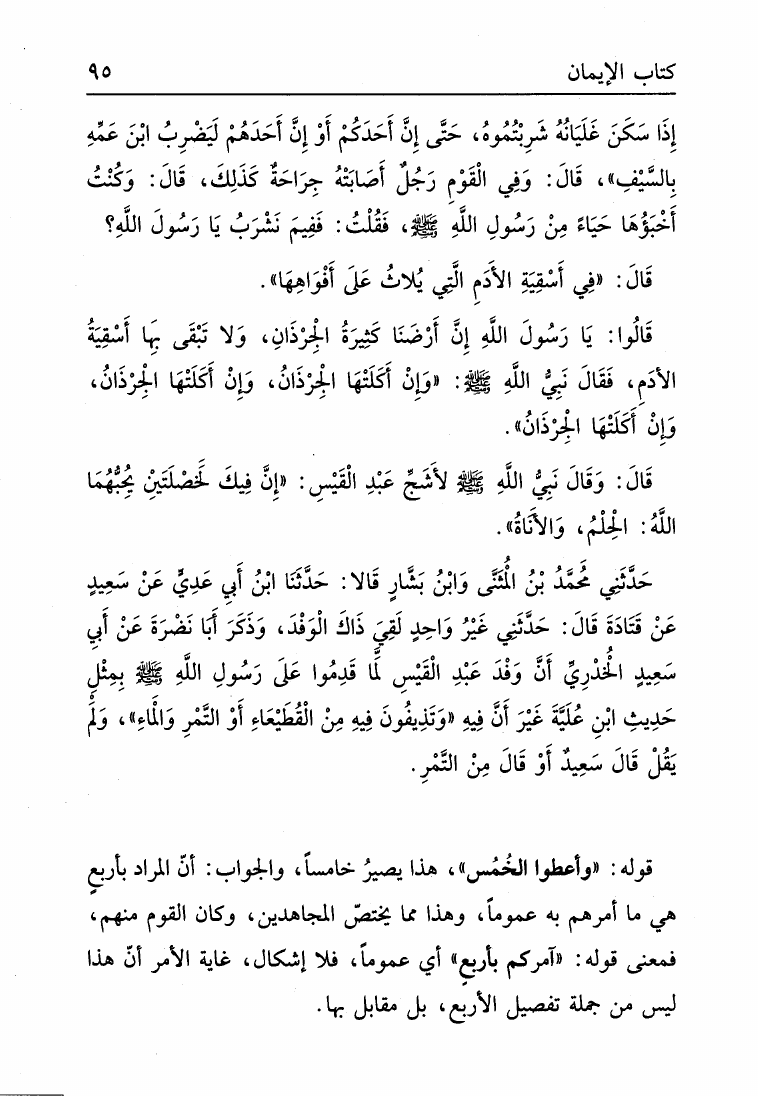 كتاب الإيمان ٩٥
إِذَا سَكَنَ غَلَيَانُهُ شَرِبْتُمُوهُ، حَتَّى إِنَّ أَحَدَكُمْ أَوْ إِنَّ أَحَدَهُمْ لَيَضْرِبُ ابْنَ عَمِّهِ
بِالسَّيْفِ»، قَالَ: وَفِي الْقَوْمِ رَجُلٌ أَصَابَتْهُ جِرَاحَةٌ كَذَلِكَ، قَالَ: وَكُنْتُ
أَخْبَؤُهَا حَيَاءً مِنْ رَسُولِ اللَّهِ ﷺ، فَقُلْتُ: فَفِيمَ نَشْرَبُ يَا رَسُولَ اللَّهِ؟
قَالَ: «فِي أَسْقِيَةِ الأَدَمِ الَّتِي يُلاثُ عَلَى أَفْوَاهِهَا».
قَالُوا: يَا رَسُولَ اللَّهِ إِنَّ أَرْضَنَا كَثِيرَةُ الْجِرْذَانِ، وَلا تَبْقَى بِهَا أَسْقِيَةُ
الأَدَمِ، فَقَالَ نَبِيُّ اللَّهِ ﷺ: «وَإِنْ أَكَلَتْهَا الْجِرْذَانُ، وَإِنْ أَكَلَتْهَا الْجِرْذَانُ،
وَإِنْ أَكَلَتْهَا الْجِرْذَانُ».
قَالَ: وَقَالَ نَبِيُّ اللَّهِ ﷺ لأَشَجِّ عَبْدِ الْقَيْسِ: «إِنَّ فِيكَ لَخَصْلَتَيْنِ يُحِبُّهُمَا
اللَّهُ: الْحِلْمُ، وَالأَنَاةُ».
حَدَّثَنِي مُحَمَّدُ بْنُ الْمُثَنَّى وَابْنُ بَشَّارٍ قَالا: حَدَّثَنَا ابْنُ أَبِي عَدِيٍّ عَنْ سَعِيدٍ
عَنْ قَتَادَةَ قَالَ: حَدَّثَنِي غَيْرُ وَاحِدٍ لَقِيَ ذَاكَ الْوَفْدَ، وَذَكَرَ أَبَا نَضْرَةَ عَنْ أَبِي
سَعِيدٍ الْخُدْرِيِّ أَنَّ وَفْدَ عَبْدِ الْقَيْسِ لَمَّا قَدِمُوا عَلَى رَسُولِ اللَّهِ ﷺ بِمِثْلِ
حَدِيثِ ابْنِ عُلَيَّةَ غَيْرَ أَنَّ فِيهِ «وَتَذِيفُونَ فِيهِ مِنْ الْقُطَيْعَاءِ أَوْ التَّمْرِ وَالْمَاءِ»، وَلَمْ
يَقُلْ قَالَ سَعِيدٌ أَوْ قَالَ مِنْ التَّمْرِ.
قوله: «وأعطوا الخُمُس»، هذا يصيرُ خامساً، والجواب: أنّ المراد بأربعٍ
هي ما أمرهم به عموماً، وهذا مما يختصّ المجاهدين، وكان القوم منهم،
فمعنى قوله: «آمركم بأربعٍ» أي عموماً، فلا إشكال، غاية الأمر أنّ هذا
ليس من جملة تفصيل الأربع، بل مقابل بها.